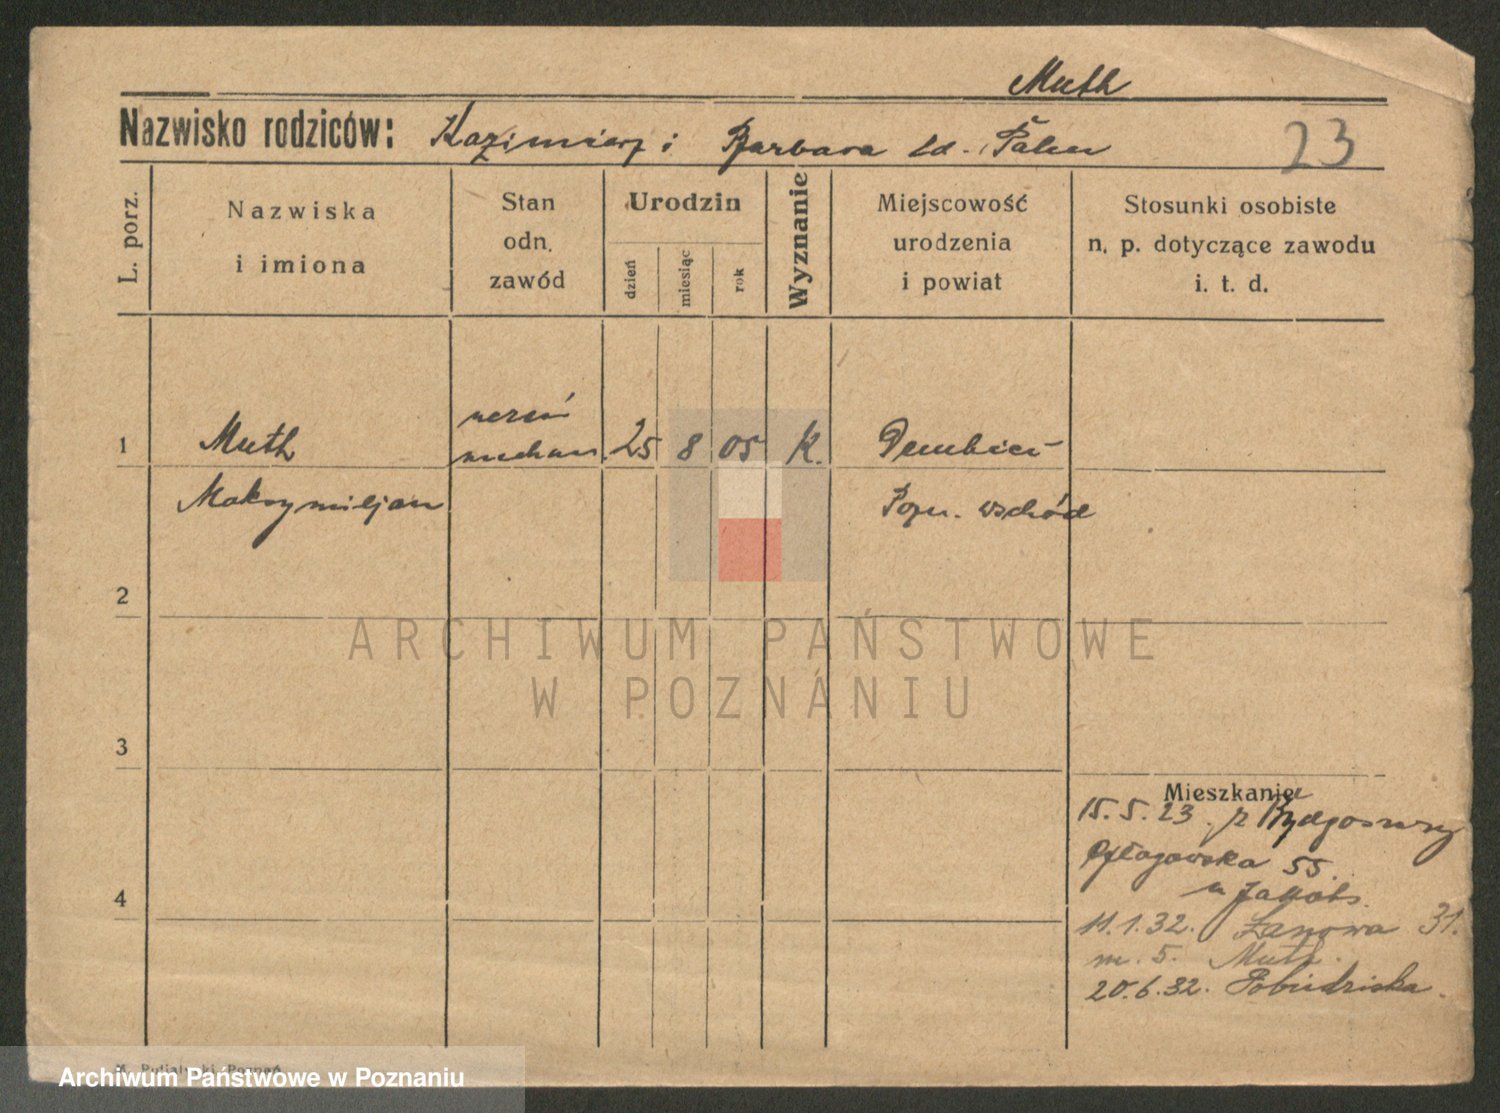 Muth
Nazwisko rodziców: Kazimierz i Barbara
23
L. porz.
Nazwiska
i imiona
Stan
odn.
zawód
Urodzin
dzień
miesiąc
rok
Wyznanie
Miejscowość
urodzenia
i powiat
Stosunki osobiste
n. p. dotyczące zawodu
i. t. d.
1
Muth
uczeń
25
8
05
K.
Maksymiljan
Pozn. wschód
2
ARCHIWUM PAŃSTWOWE
W POZNANIU
3
Mieszkanie
15.5.23. z Bydgoszczy
55.
u Jakobs.
4
11.1.32. Łanowa 31.
m. 5. Muth.
20.6.32. Pobiedziska.
Poznań
Archiwum Państwowe w Poznaniu